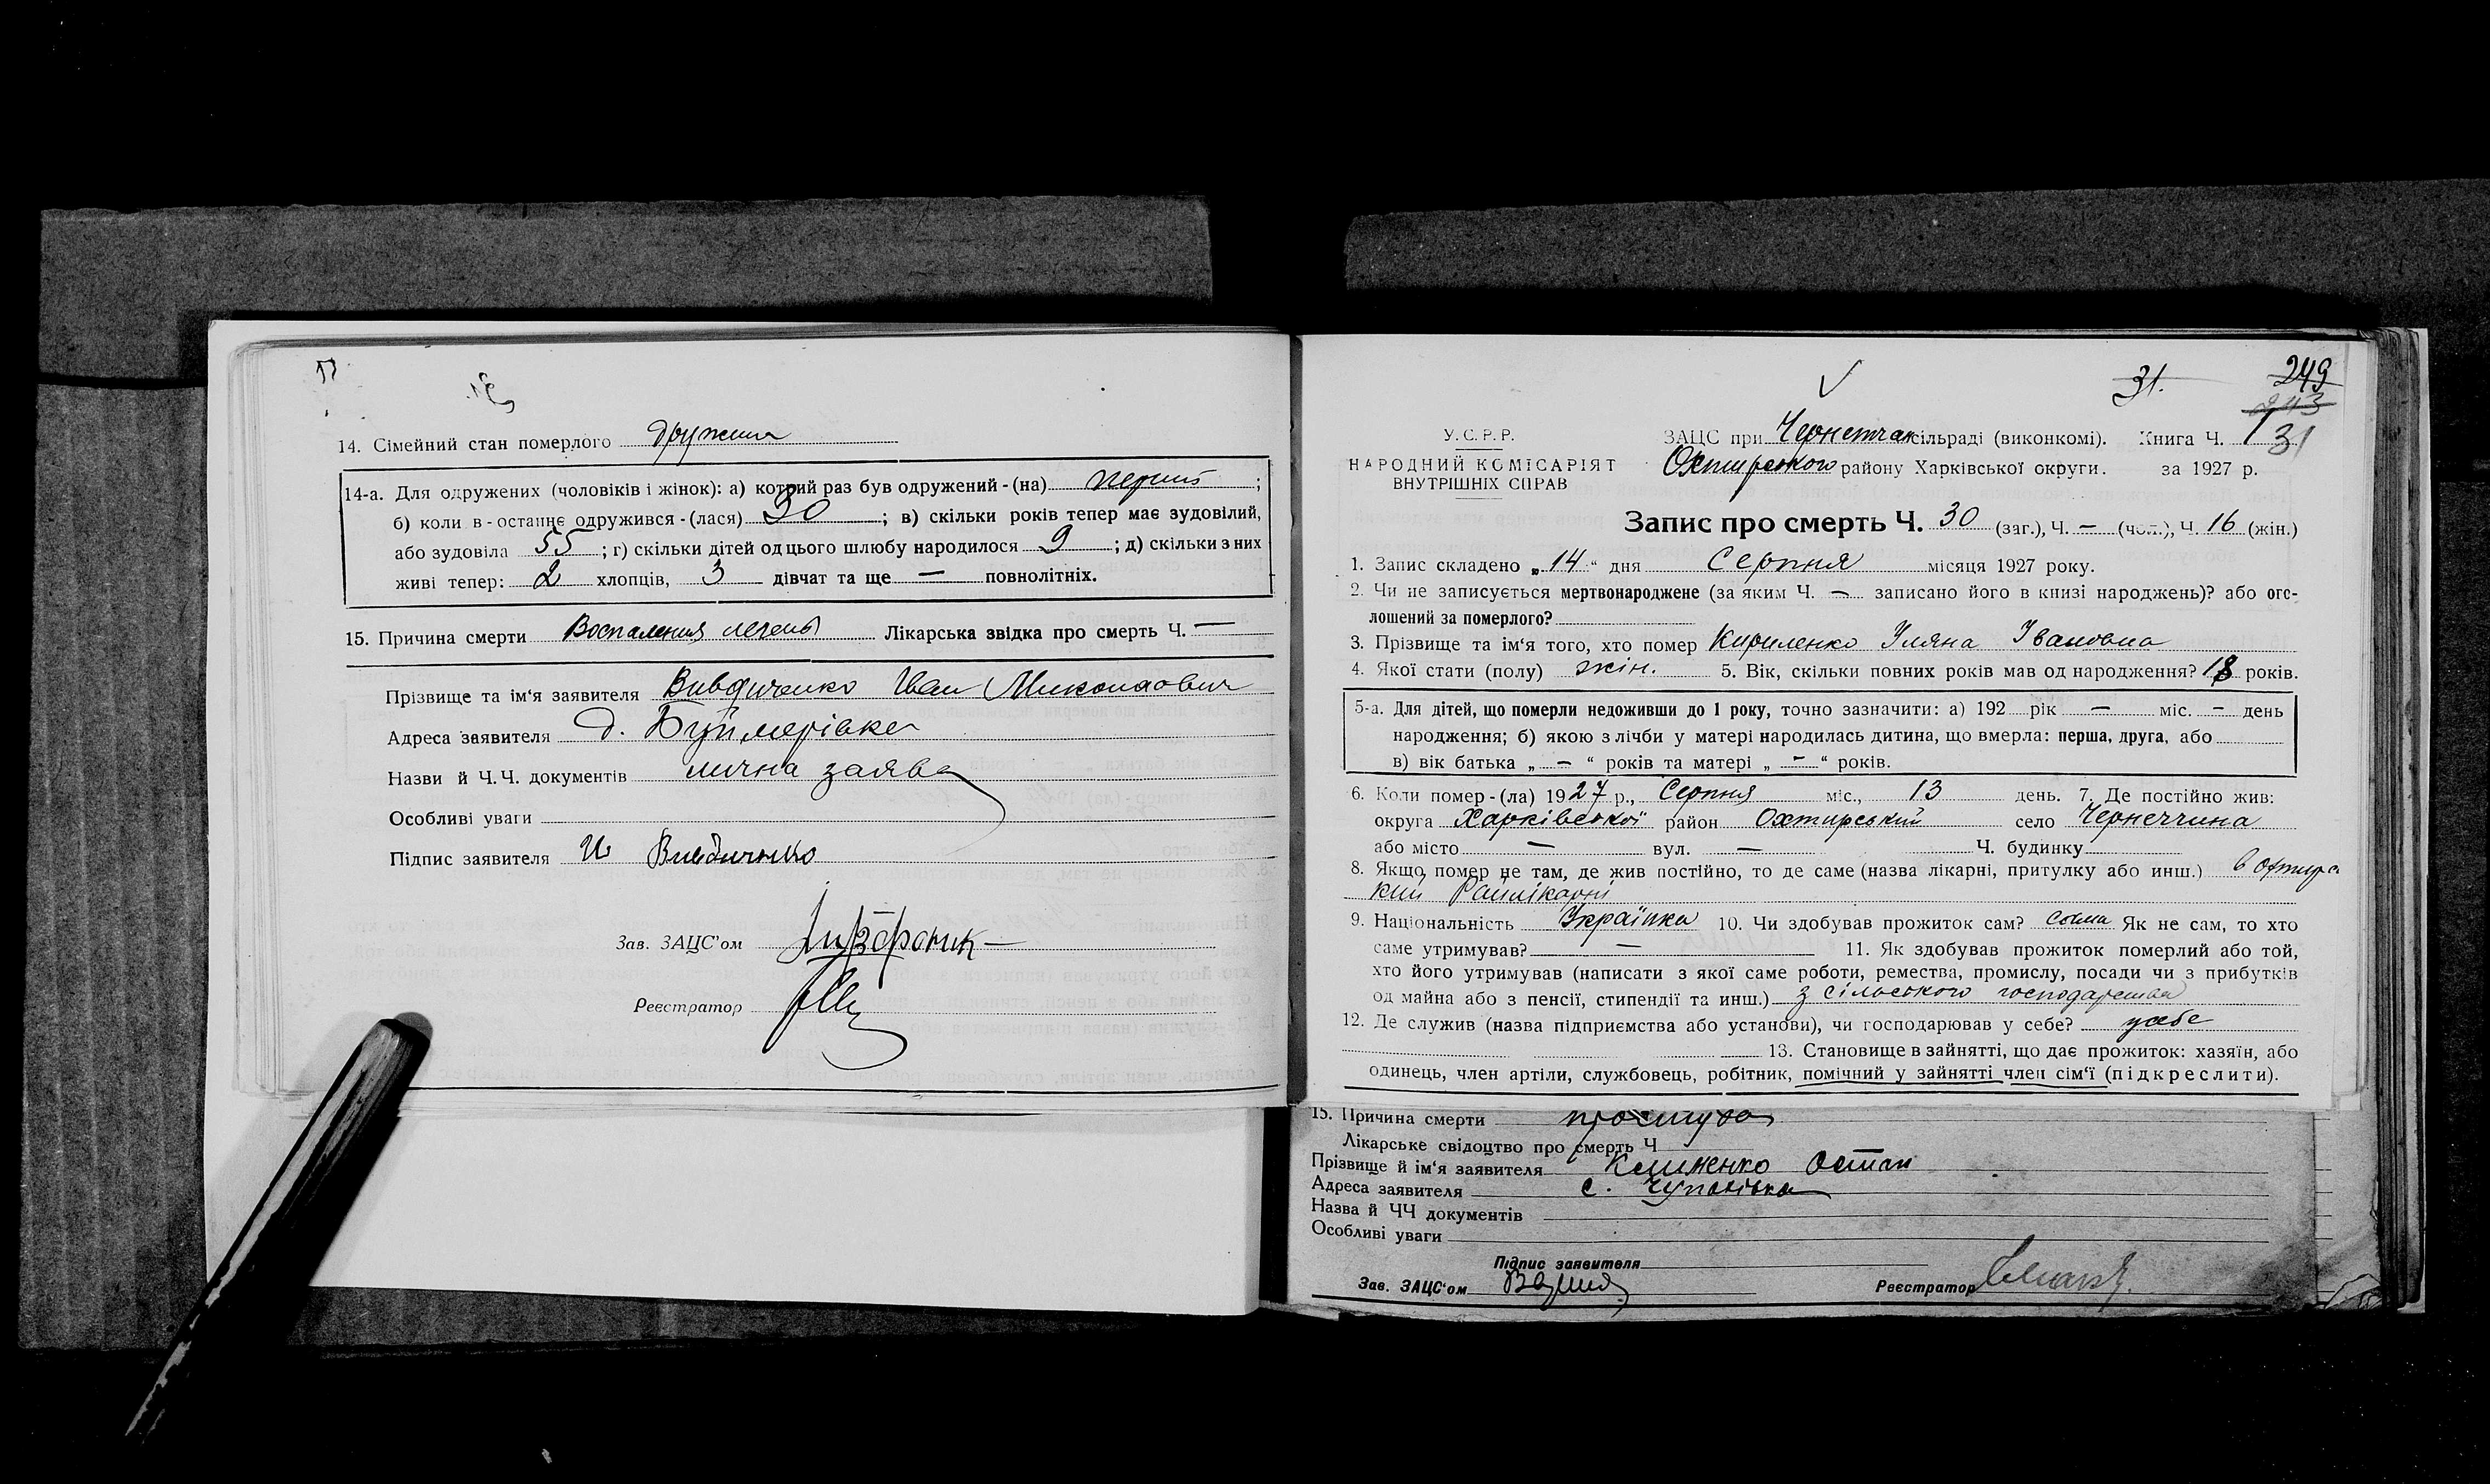 14. Сімейний стан померлого дружина
14-а. Для одружених (чоловіків і жінок): а) котрий раз був одружений - (на) перший ;
б) коли в - останнє одружився - (лася) 30 ; в) скільки років тепер має зудовілий,
або зудовіла 55 ; г) скільки дітей од цього шлюбу народилося 9 ; д) скільки з них
живі тепер: 2 хлопців, 3 дівчат та ще — повнолітніх.
15. Причина смерти Воспаления печены Лікарська звідка про смерть Ч. —
Прізвище та ім'я заявителя Вивдиченко Иван Миколаович
Адреса заявителя д. Буймерівка
Назви й Ч.Ч. документів лична заява
Особливі уваги
Підпис заявителя И Вивдиченко
Зав. ЗАЦС'ом
Реєстратор
31.
249
243
31
У.С.Р.Р.
НАРОДНИЙ КОМІСАРІЯТ
ВНУТРІШНІХ СПРАВ
ЗАЦС при Чернетчан сільраді (виконкомі). Книга Ч. 1
Охтирського району Харківської округи. за 1927 р.
Запис про смерть Ч. 30 (заг.), Ч. — (чол.), Ч. 16 (жін.)
1. Запис складено „ 14 “ дня Серпня місяця 1927 року.
2. Чи не записується мертвонароджене (за яким Ч. — записано його в книзі народжень)? або ого-
лошений за померлого?
3. Прізвище та ім'я того, хто помер Кириленко Уляна Івановна
4. Якої стати (полу) жін. 5. Вік, скільки повних років мав од народження? 18 років.
5-а. Для дітей, що померли недоживши до 1 року, точно зазначити: а) 192 рік — міс. — день
народження; б) якою з лічби у матері народилась дитина, що вмерла: перша, друга, або
в) вік батька „ — “ років та матері „ — “ років.
6. Коли помер - (ла) 1927 р., Серпня міс., 13 день. 7. Де постійно жив:
округа Харківської район Охтирський село Чернеччина
або місто — вул. — Ч. будинку
8. Якщо помер не там, де жив постійно, то де саме (назва лікарні, притулку або инш.) в Охтирс
кий Райлікарні
9. Національність Українка 10. Чи здобував прожиток сам? сама Як не сам, то хто
саме утримував? — 11. Як здобував прожиток померлий або той,
хто його утримував (написати з якої саме роботи, ремества, промислу, посади чи з прибутків
од майна або з пенсії, стипендії та инш.) з сільського господарства
12. Де служив (назва підприємства або установи), чи господарював у себе? усебе
13. Становище в зайнятті, що дає прожиток: хазяїн, або
одинець, член артіли, службовець, робітник, помічний у зайнятті член сім'ї (підкреслити).
15. Причина смерти простуда
Лікарське свідоцтво про смерть Ч
Прізвище й ім'я заявителя Клименко Остап
Адреса заявителя с. Чупахівка
Назва й ЧЧ документів
Особливі уваги
Підпис заявителя
Зав. ЗАЦС'ом
Реєстратор